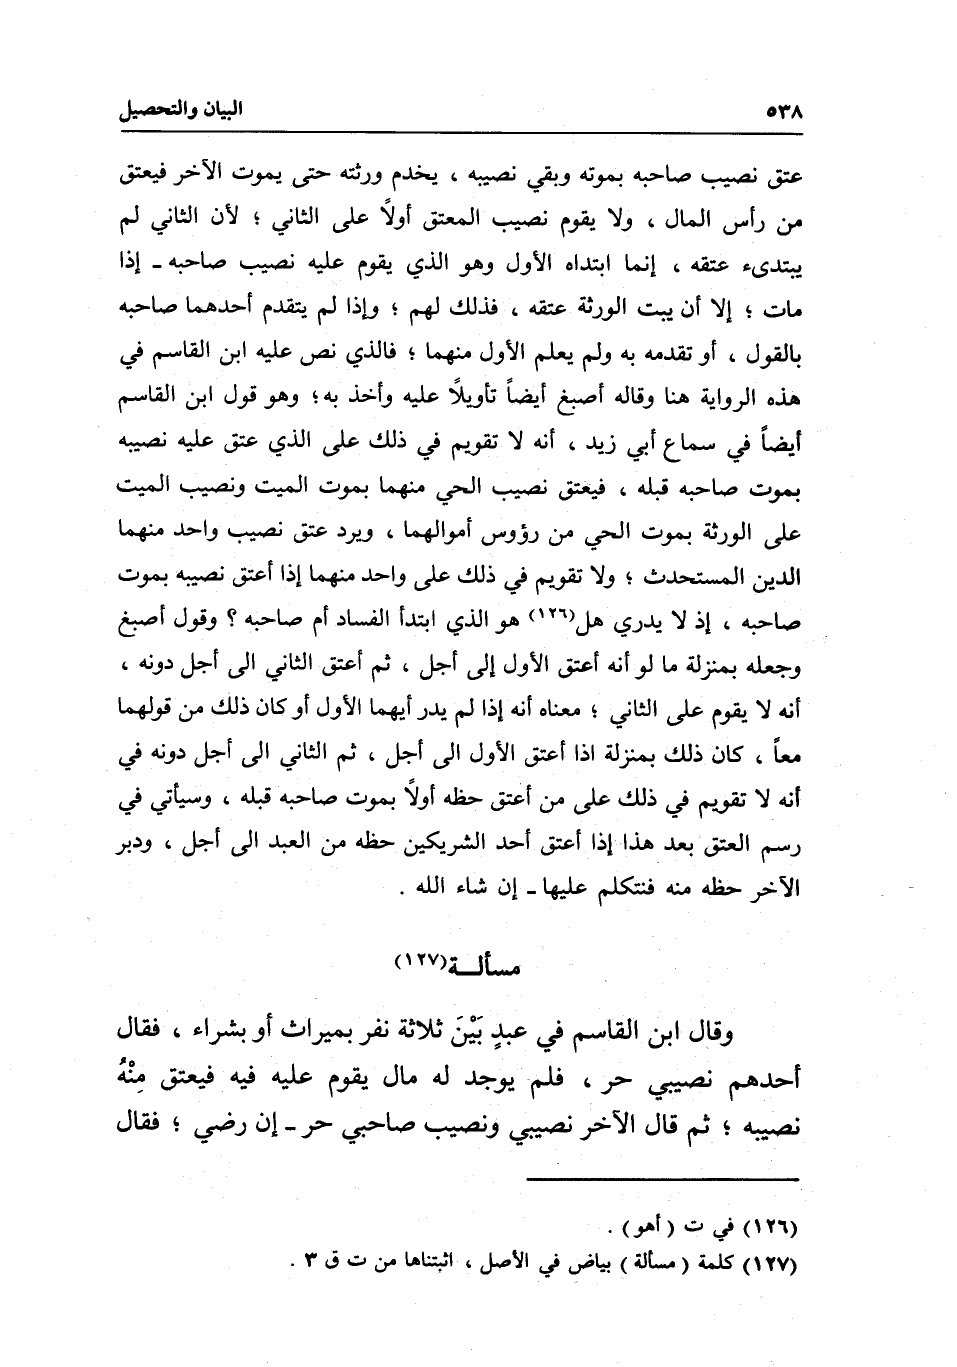 ٥٣٨ البيان والتحصيل
عتق نصيب صاحبه بموته وبقي نصيبه ، يخدم ورثته حتى يموت الآخر فيعتق
من رأس المال ، ولا يقوم نصيب المعتق أولاً على الثاني ؛ لأن الثاني لم
يبتدىء عتقه ، إنما ابتداه الأول وهو الذي يقوم عليه نصيب صاحبه ـ إذا
مات ؛ إلا أن يبت الورثة عتقه ، فذلك لهم ؛ وإذا لم يتقدم أحدهما صاحبه
بالقول ، أو تقدمه به ولم يعلم الأول منهما ؛ فالذي نص عليه ابن القاسم في
هذه الرواية هنا وقاله أصبغ أيضاً تأويلاً عليه وأخذ به ؛ وهو قول ابن القاسم
أيضاً في سماع أبي زيد ، أنه لا تقويم في ذلك على الذي عتق عليه نصيبه
بموت صاحبه قبله ، فيعتق نصيب الحي منهما بموت الميت ونصيب الميت
على الورثة بموت الحي من رؤوس أموالهما ، ويرد عتق نصيب واحد منهما
الدين المستحدث ؛ ولا تقويم في ذلك على واحد منهما إذا أعتق نصيبه بموت
صاحبه ، إذ لا يدري هل(١٢٦) هو الذي ابتدأ الفساد أم صاحبه ؟ وقول أصبغ
وجعله بمنزلة ما لو أنه أعتق الأول إلى أجل ، ثم أعتق الثاني الى أجل دونه ،
أنه لا يقوم على الثاني ؛ معناه أنه إذا لم يدر أيهما الأول أو كان ذلك من قولهما
معاً ، كان ذلك بمنزلة اذا أعتق الأول الى أجل ، ثم الثاني الى أجل دونه في
أنه لا تقويم في ذلك على من أعتق حظه أولاً بموت صاحبه قبله ، وسيأتي في
رسم العتق بعد هذا إذا أعتق أحد الشريكين حظه من العبد الى أجل ، ودبر
الآخر حظه منه فنتكلم عليها ـ إن شاء الله .
مسألـة(١٢٧)
وقال ابن القاسم في عبدٍ بَيْنَ ثلاثة نفر بميراث أو بشراء ، فقال
أحدهم نصيبي حر ، فلم يوجد له مال يقوم عليه فيه فيعتق مِنْهُ
نصيبه ؛ ثم قال الآخر نصيبي ونصيب صاحبي حر ـ إن رضي ؛ فقال
(١٢٦) في ت ( أهو ) .
(١٢٧) كلمة ( مسألة ) بياض في الأصل ، اثبتناها من ت ق ٣ .